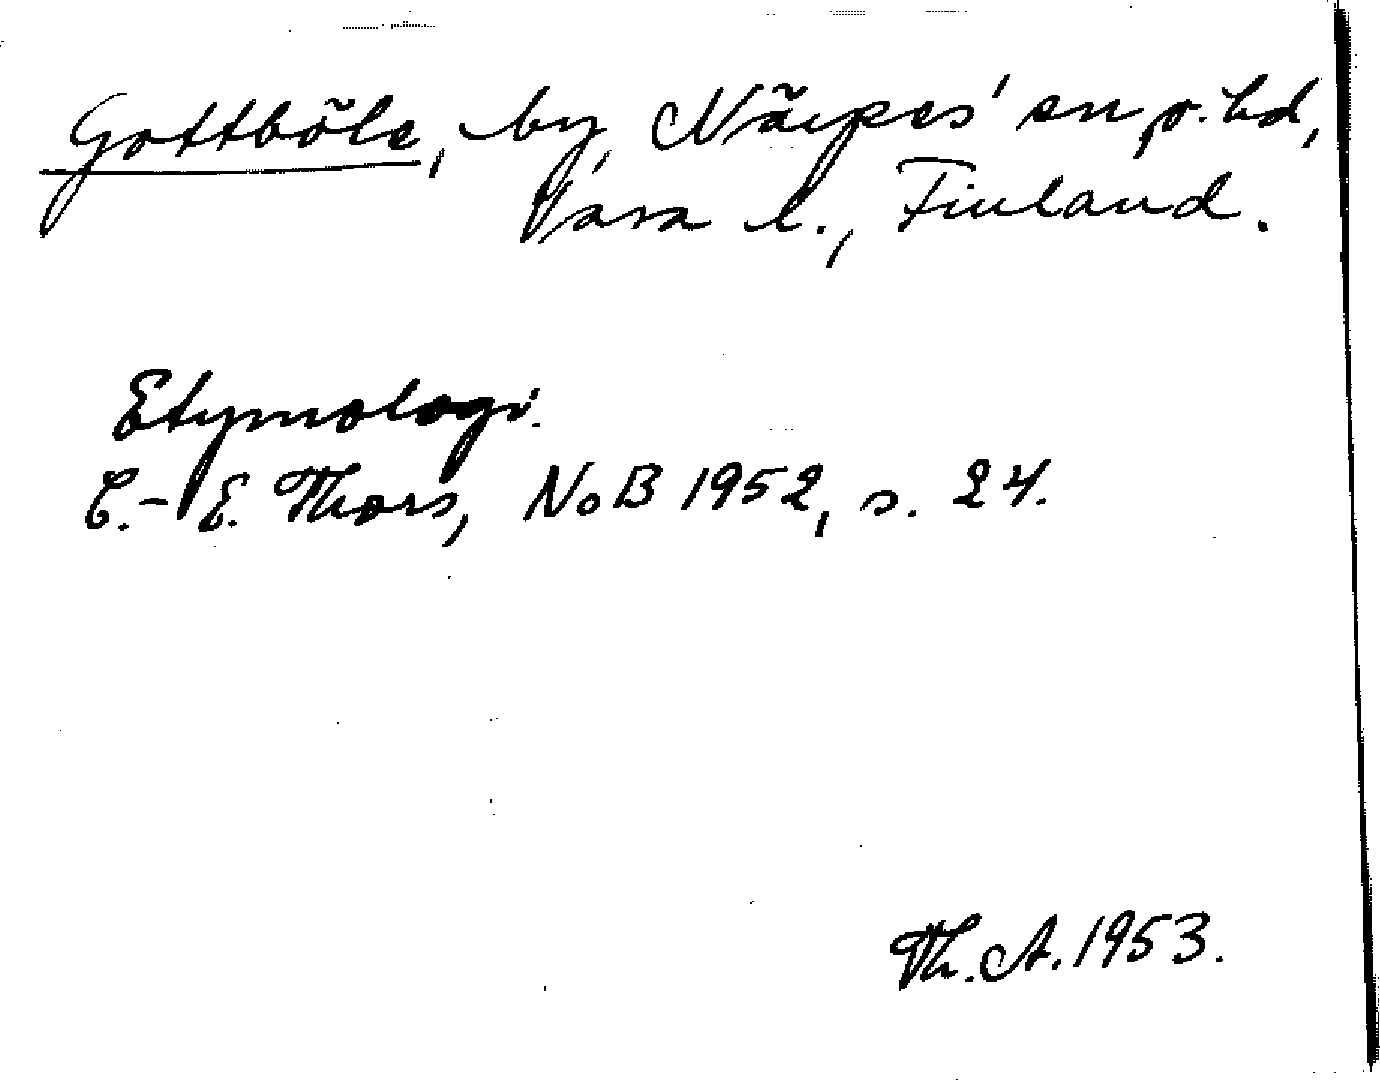 Gottböle, by, Närpes' sn o. hd,
Vasa l., Finland.
Etymologi.
C.-E. Thors, NoB 1952, s. 24.
Th. A. 1953.